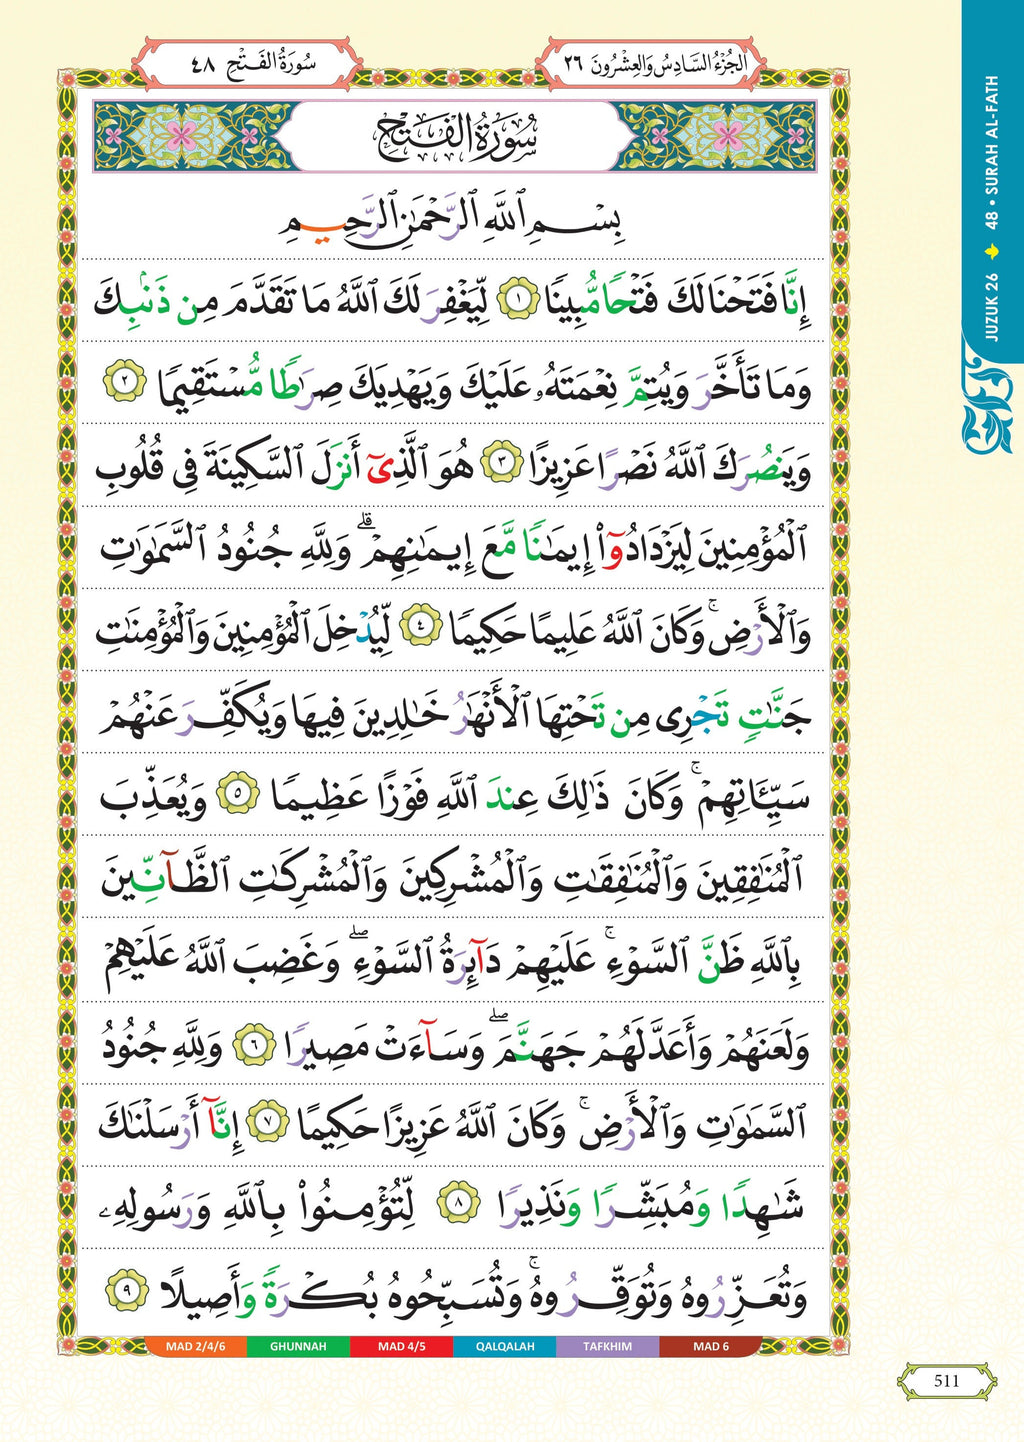 سُورَةُ الفَتْحِ ٤٨
الجُزْءُ السَّادِسُ وَالعِشْرُونَ ٢٦
JUZUK 26 48 • SURAH AL-FATH
سُورَةُ الفَتْحِ
بِسْمِ ٱللَّهِ ٱلرَّحْمَٰنِ ٱلرَّحِيمِ
إِنَّا فَتَحْنَا لَكَ فَتْحًا مُّبِينًا ١ لِّيَغْفِرَ لَكَ ٱللَّهُ مَا تَقَدَّمَ مِن ذَنۢبِكَ
وَمَا تَأَخَّرَ وَيُتِمَّ نِعْمَتَهُۥ عَلَيْكَ وَيَهْدِيَكَ صِرَٰطًا مُّسْتَقِيمًا ٢
وَيَنصُرَكَ ٱللَّهُ نَصْرًا عَزِيزًا ٣ هُوَ ٱلَّذِىٓ أَنزَلَ ٱلسَّكِينَةَ فِى قُلُوبِ
ٱلْمُؤْمِنِينَ لِيَزْدَادُوٓا۟ إِيمَٰنًا مَّعَ إِيمَٰنِهِمْ ۗ وَلِلَّهِ جُنُودُ ٱلسَّمَٰوَٰتِ
وَٱلْأَرْضِ ۚ وَكَانَ ٱللَّهُ عَلِيمًا حَكِيمًا ٤ لِّيُدْخِلَ ٱلْمُؤْمِنِينَ وَٱلْمُؤْمِنَٰتِ
جَنَّٰتٍ تَجْرِى مِن تَحْتِهَا ٱلْأَنْهَٰرُ خَٰلِدِينَ فِيهَا وَيُكَفِّرَ عَنْهُمْ
سَيِّـَٔاتِهِمْ ۚ وَكَانَ ذَٰلِكَ عِندَ ٱللَّهِ فَوْزًا عَظِيمًا ٥ وَيُعَذِّبَ
ٱلْمُنَٰفِقِينَ وَٱلْمُنَٰفِقَٰتِ وَٱلْمُشْرِكِينَ وَٱلْمُشْرِكَٰتِ ٱلظَّآنِّينَ
بِٱللَّهِ ظَنَّ ٱلسَّوْءِ ۚ عَلَيْهِمْ دَآئِرَةُ ٱلسَّوْءِ ۖ وَغَضِبَ ٱللَّهُ عَلَيْهِمْ
وَلَعَنَهُمْ وَأَعَدَّ لَهُمْ جَهَنَّمَ ۖ وَسَآءَتْ مَصِيرًا ٦ وَلِلَّهِ جُنُودُ
ٱلسَّمَٰوَٰتِ وَٱلْأَرْضِ ۚ وَكَانَ ٱللَّهُ عَزِيزًا حَكِيمًا ٧ إِنَّآ أَرْسَلْنَٰكَ
شَٰهِدًا وَمُبَشِّرًا وَنَذِيرًا ٨ لِّتُؤْمِنُوا۟ بِٱللَّهِ وَرَسُولِهِۦ
وَتُعَزِّرُوهُ وَتُوَقِّرُوهُ ۚ وَتُسَبِّحُوهُ بُكْرَةً وَأَصِيلًا ٩
MAD 2/4/6 GHUNNAH MAD 4/5 QALQALAH TAFKHIM MAD 6
511